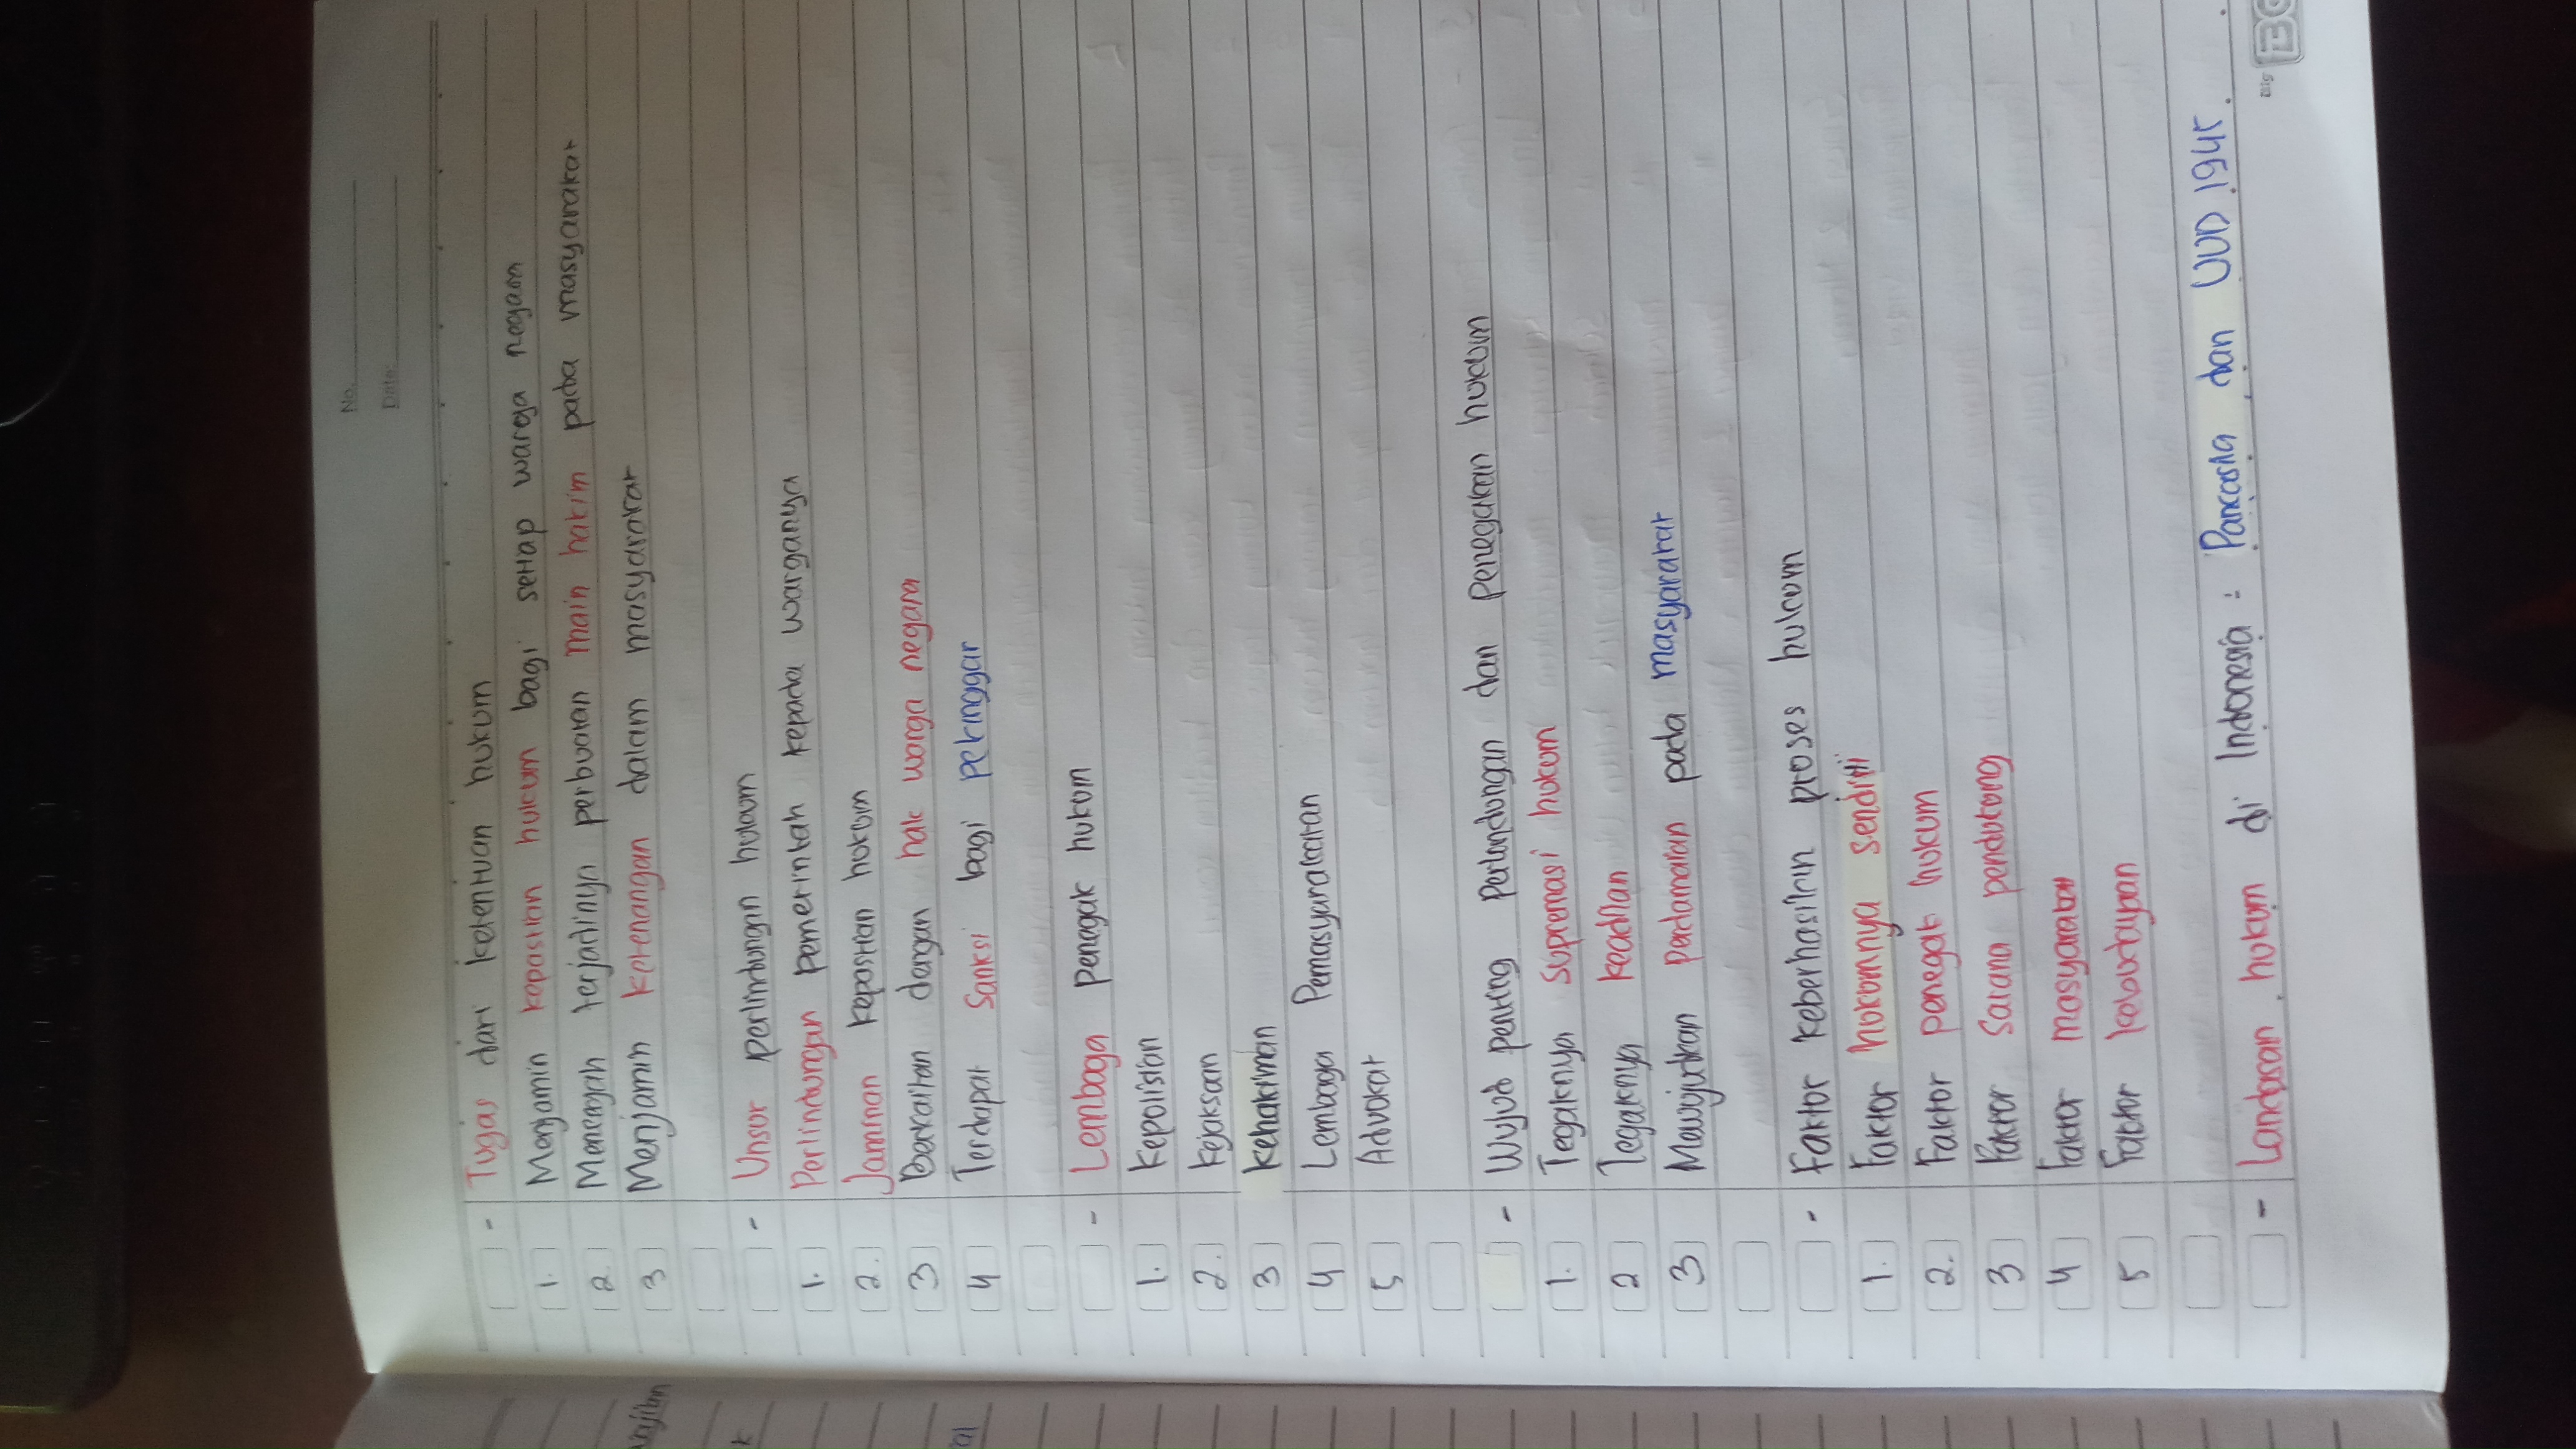 No.
Date:
- Tugas dari ketentuan hukum
1. Menjamin kepastian hukum bagi setiap warga negara
2. Mencegah terjadinya perbuatan main hakim pada masyarakat
3 Menjamin ketenangan dalam masyarakat
- Unsur perlindungan hukum
1. Perlindungan pemerintah kepada warganya
2. Jaminan kepastian hukum
3 Berkaitan dengan hak warga negara
4 Terdapat sanksi bagi pelanggar
- Lembaga penegak hukum
1. Kepolisian
2. Kejaksaan
3 Kehakiman
4 Lembaga Pemasyarakatan
5 Advokat
- Wujud penting perlindungan dan penegakan hukum
1. Tegaknya supremasi hukum
2 Tegaknya keadilan
3 Mewujudkan perdamaian pada masyarakat
- Faktor keberhasilan proses hukum
1. Faktor hukumnya sendiri
2. Faktor penegak hukum
3 Faktor sarana pendukung
4 Faktor masyarakat
5 Faktor kebudayaan
- Landasan hukum di Indonesia : Pancasila dan UUD 1945.